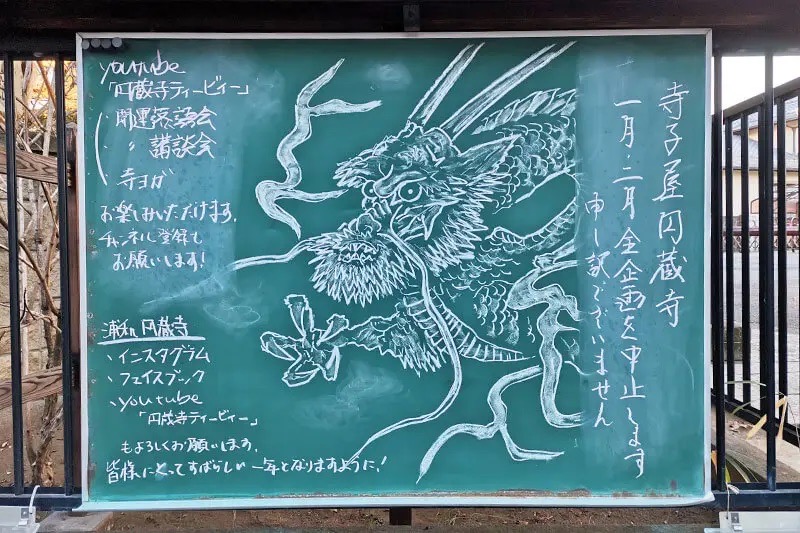 寺子屋円蔵寺
一月・二月全企画を中止します
申し訳ございません
youtube
「円蔵寺ティービィー」
開運落語会
〃 講談会
寺ヨガ
お楽しみいただけます。
チャンネル登録も
お願いします!
浦和 円蔵寺
、インスタグラム
、フェイスブック
、youtube
「円蔵寺ティービィー」
もよろしくお願いします。
皆様にとってすばらしい一年となりますように!